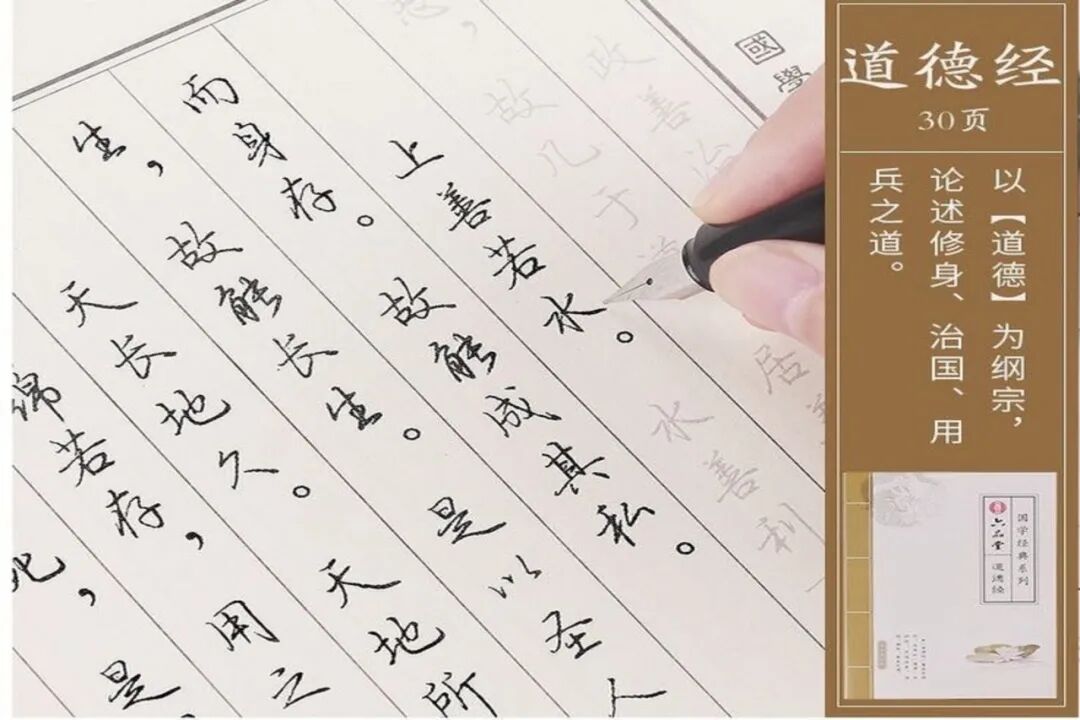 國學
政善治
恶，故几于道居
上善若水。水善利
而身存。故能成其私。
生，故能长生。是以圣人
天长地久。天地所
绵若存，用之
，是
道德经
30页
以【道德】为纲宗，
论述修身、治国、用
兵之道。
国学经典系列
六品堂
道德经